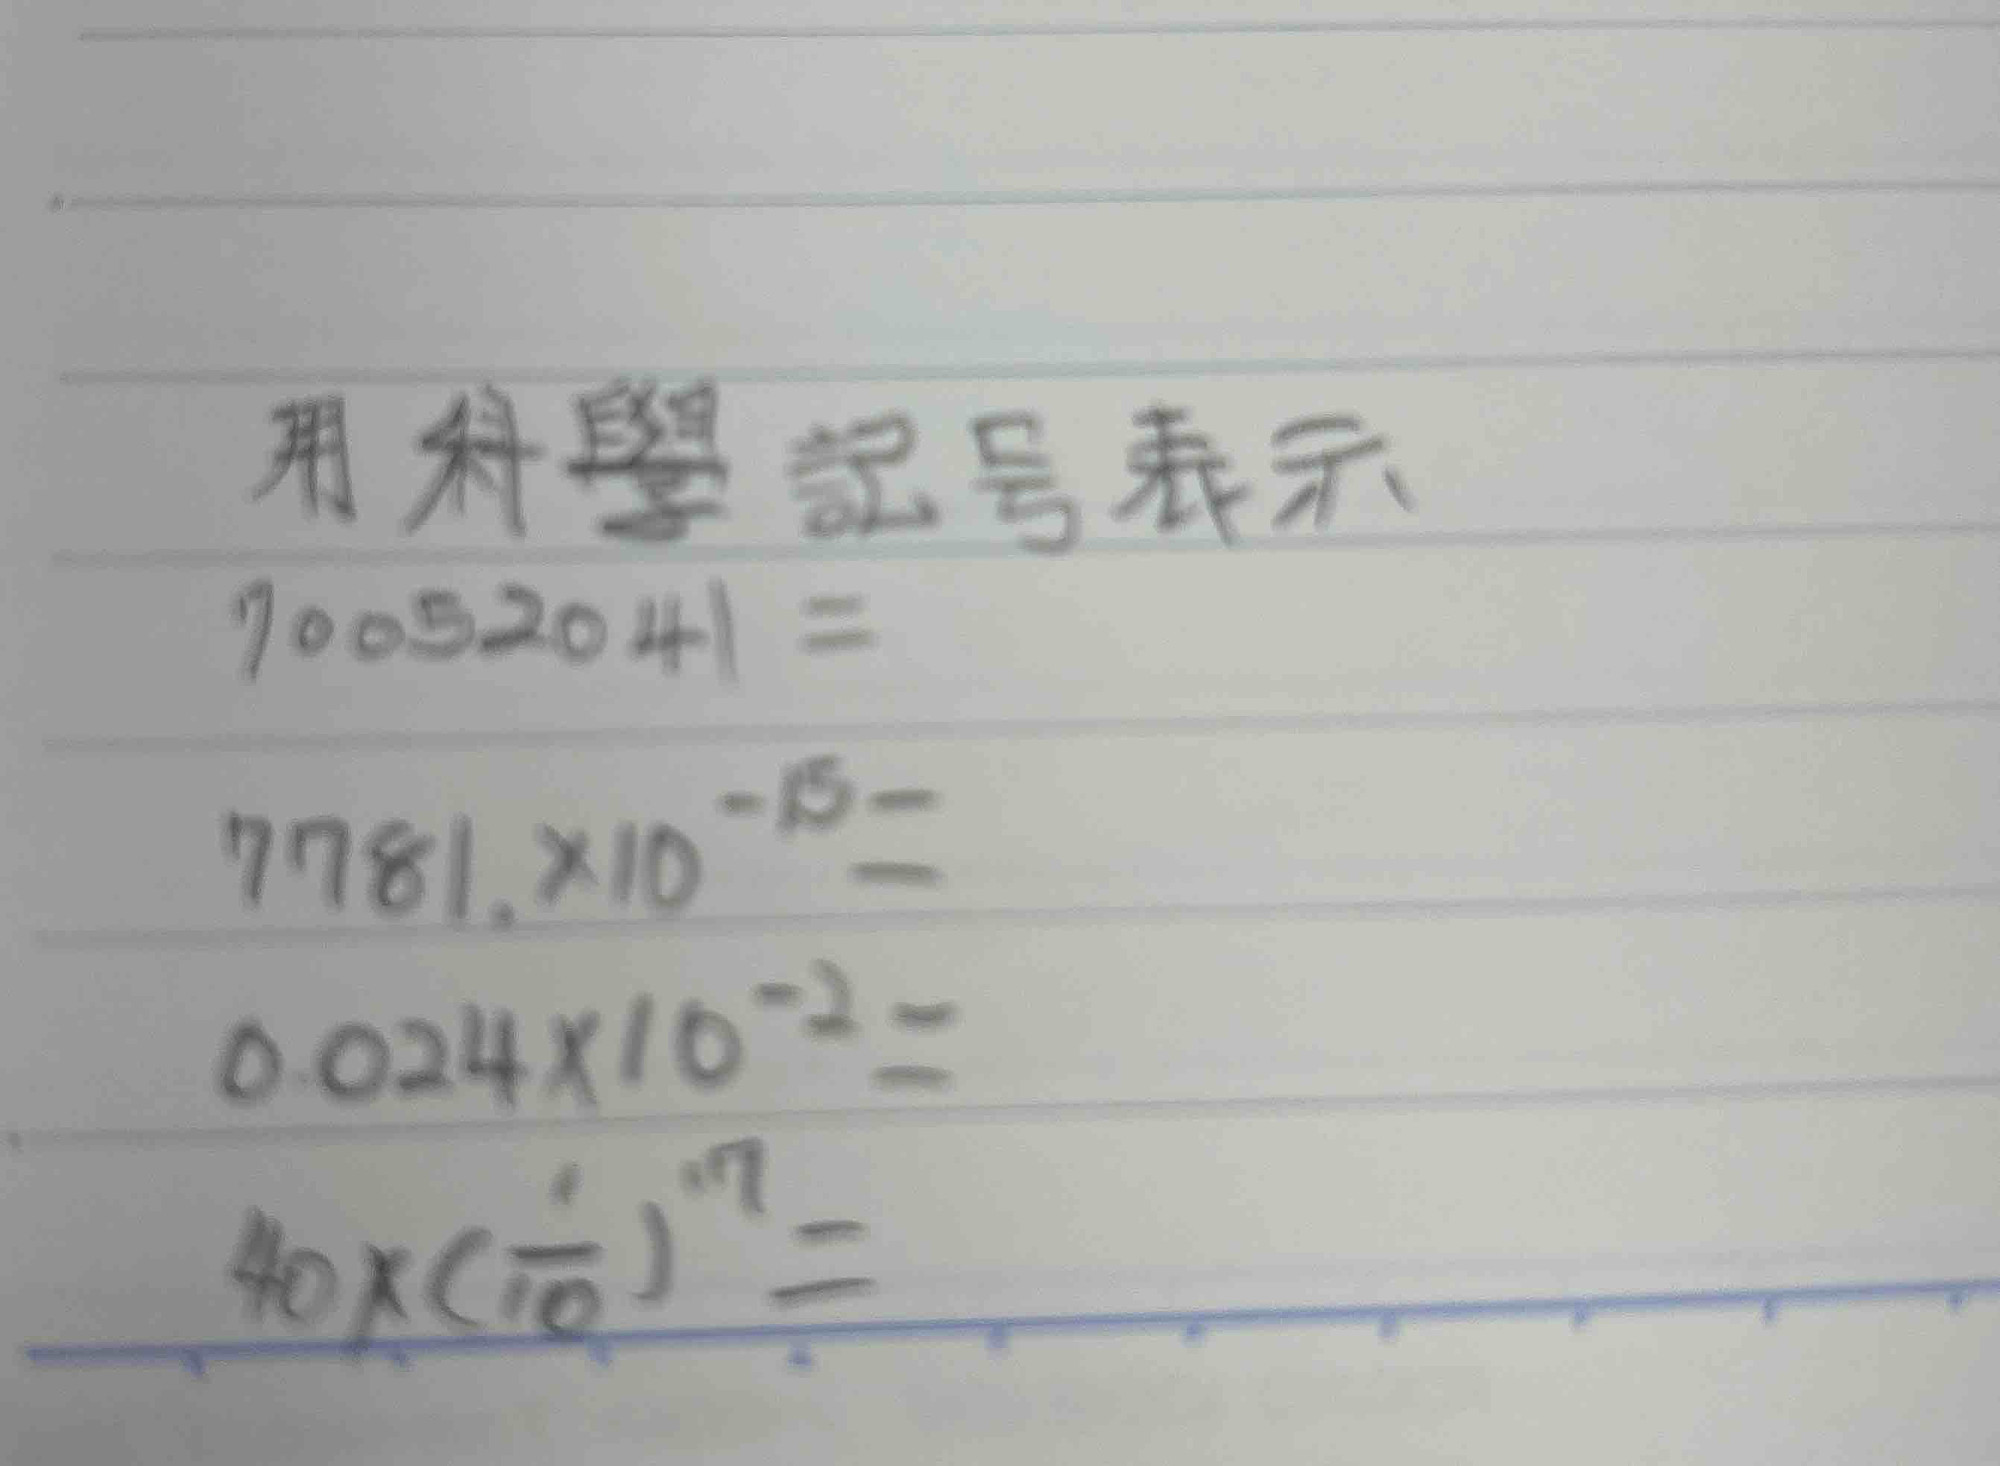 用科學記号表示
70052041 =
7781.×10^-15 =
0.024×10^-2 =
40×(1/10)^17 =